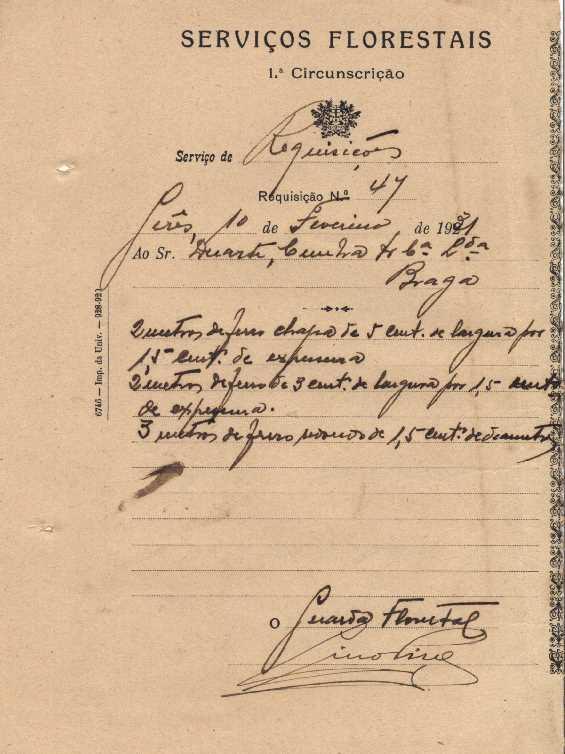 SERVIÇOS FLORESTAIS
1.ª Circunscrição
Serviço de Requisições
Requisição N.º 47
Gerês, 10 de Fevereiro de 1931
Ao Sr. Duarte, Cunha & C.ª L.da
Braga
2 metros de ferro chapa de 5 cent. de largura por
1,5 cent.s de expessura
2 metros de ferro de 3 cent.s de largura por 1,5 cent.s
de expessura.
3 metros de ferro redondo de 1,5 cent.s de diametro
O Guarda Florestal
6746 — Imp. da Univ. — 928-929